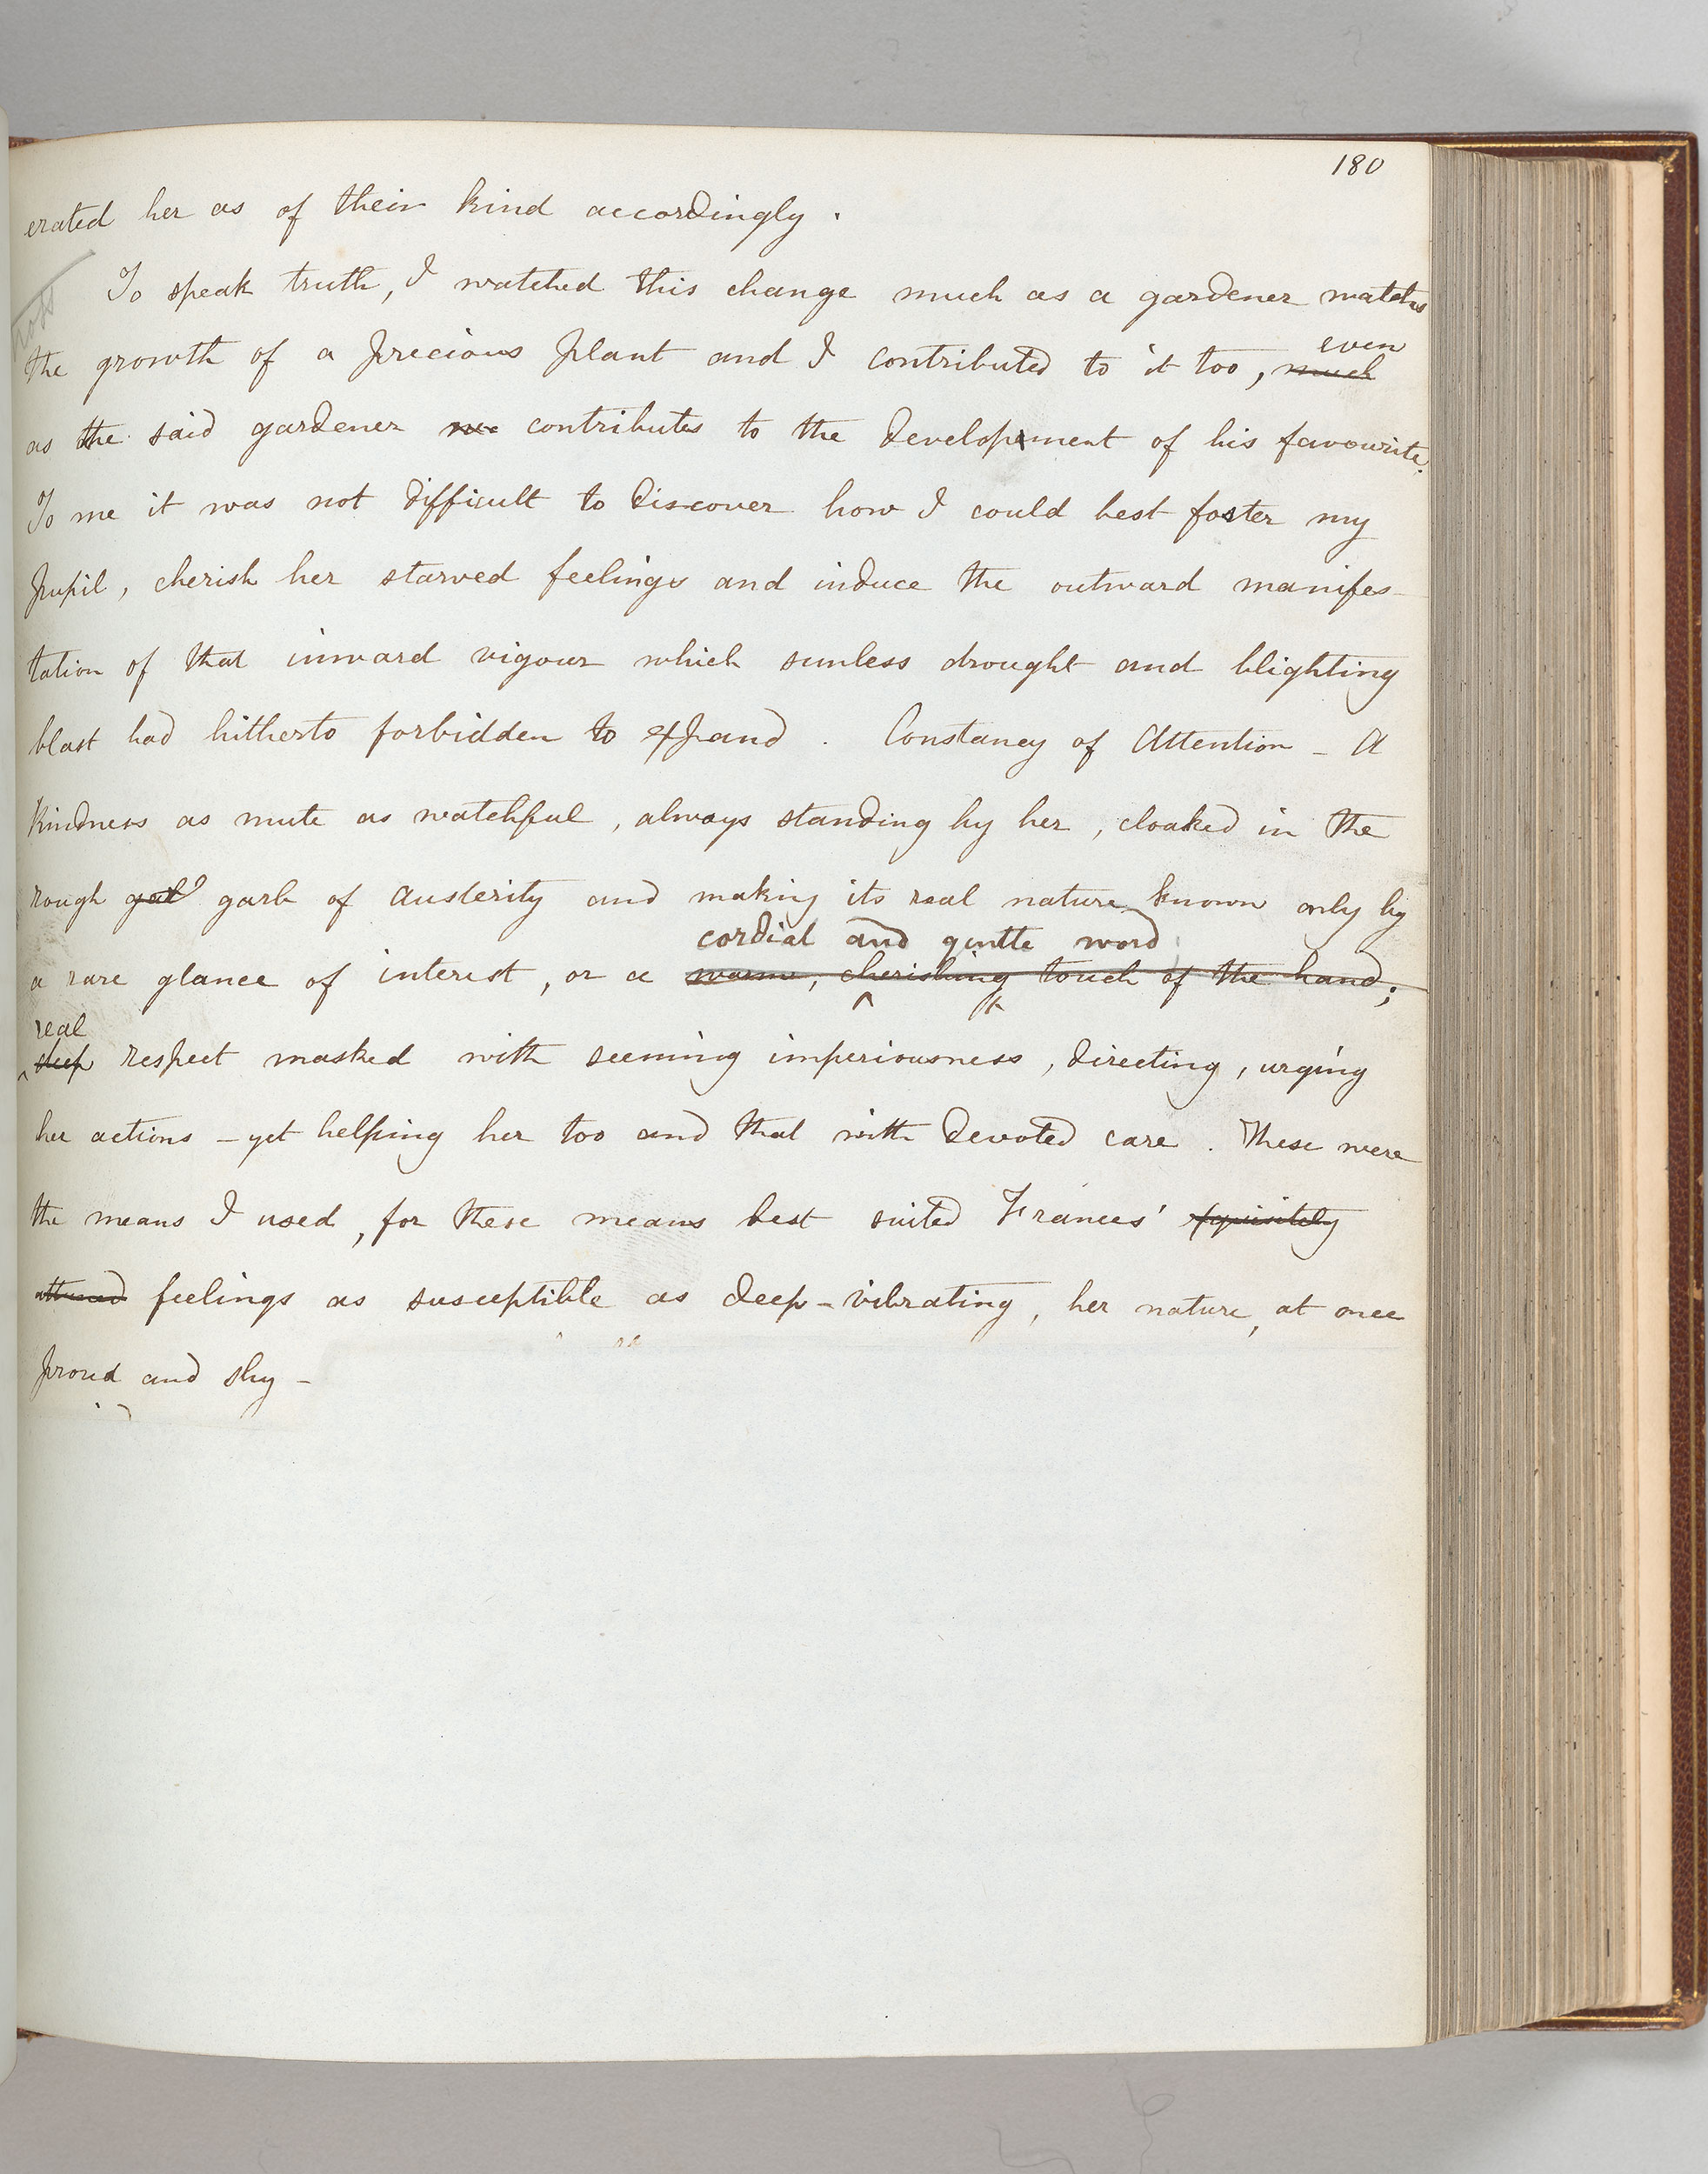 180
erated her as of their kind accordingly.
To speak truth, I watched this change much as a gardener watches
the growth of a precious plant and I contributed to it too, much even
as the said gardener contributes to the development of his favourite.
To me it was not difficult to discover how I could best foster my
pupil, cherish her starved feelings and induce the outward manifes-
tation of that inward vigour which sunless drought and blighting
blast had hitherto forbidden to expand. Constancy of Attention - A
kindness as mute as watchful, always standing by her, cloaked in the
rough garb of austerity and making its real nature known only by
cordial and gentle word
a rare glance of interest, or a warm, cherishing touch of the hand;
real
deep respect masked with seeming imperiousness, directing, urging
her actions - yet helping her too and that with devoted care. These were
the means I used, for these means best suited Frances' exquisitely
attuned feelings as susceptible as deep-vibrating, her nature, at once
proud and shy -